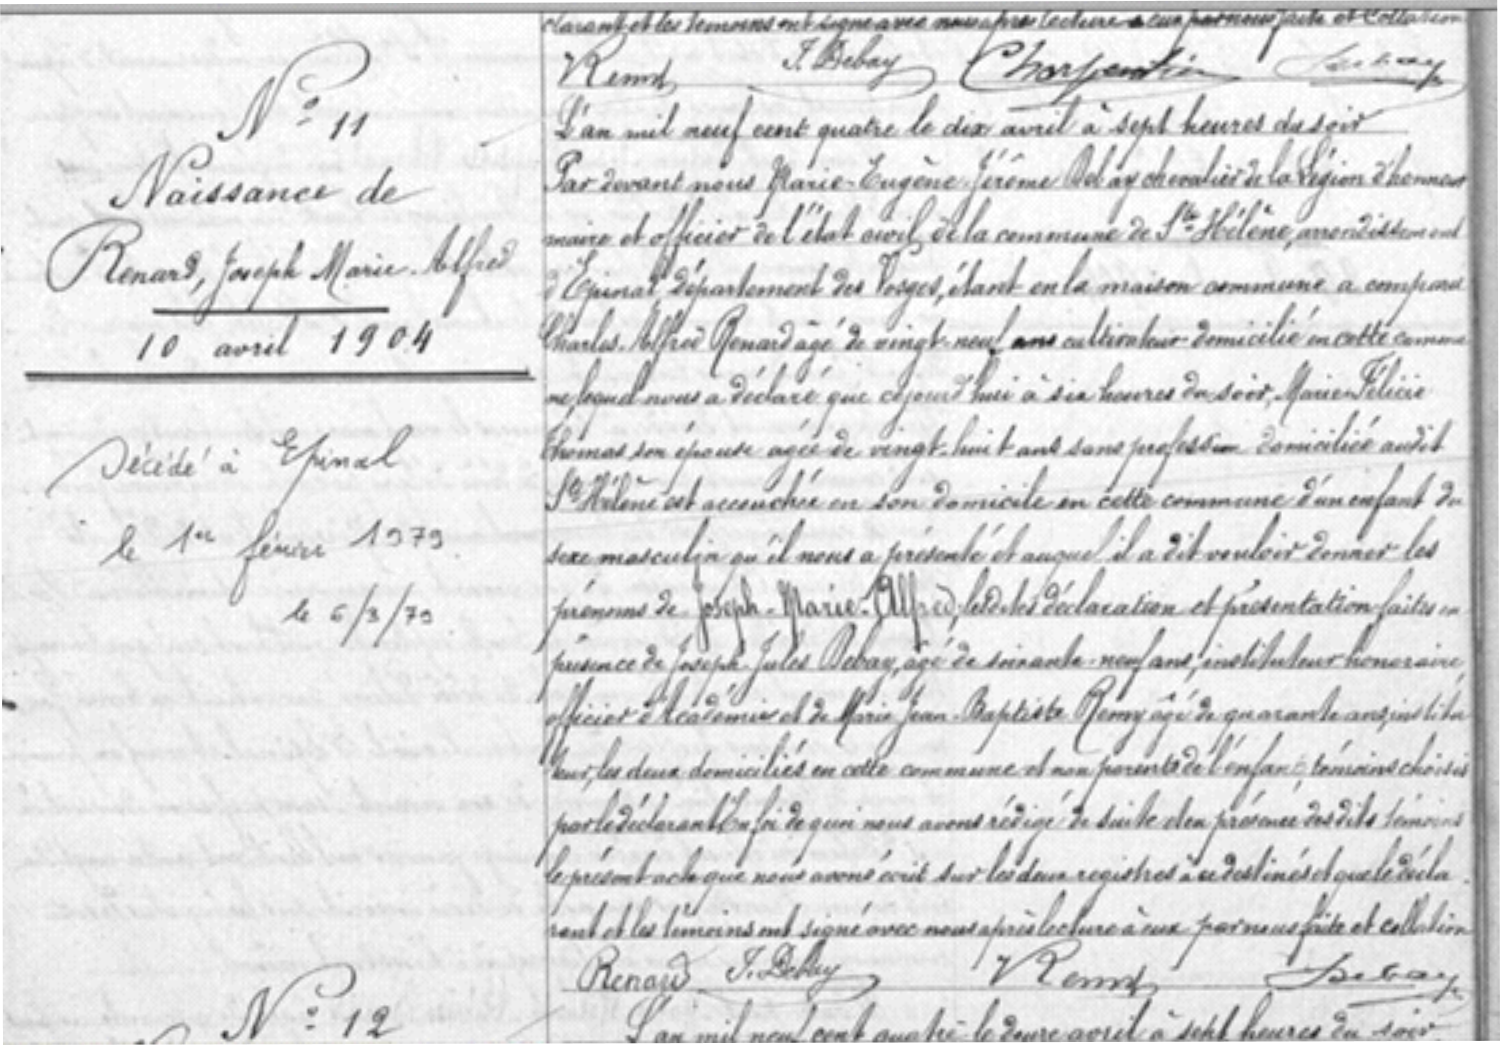 clarant et les témoins ont signé avec nous après lecture à eux par nous faite et collation
Remy J. Debay Charpentier Debay
N° 11
Naissance de
Renard, Joseph Marie-Alfred
10 avril 1904
Décédé à Epinal
le 1er février 1979.
le 6/3/79
L'an mil neuf cent quatre le dix avril à sept heures du soir
Par devant nous Marie-Eugène-Jérôme Debay chevalier de la Légion d'honneur
maire et officier de l'état civil de la commune de Ste Hélène, arrondissement
d'Epinal département des Vosges, étant en la maison commune a comparu
Charles-Alfred Renard agé de vingt-neuf ans cultivateur domicilié en cette commu
ne, lequel nous a déclaré que cejourd'hui à six heures du soir, Marie-Félicie
Thomas son épouse agée de vingt-huit ans sans profession domiciliée audit
Ste Hélène est accouchée en son domicile en cette commune d'un enfant du
sexe masculin qu'il nous a présenté et auquel il a dit vouloir donner les
prénoms de Joseph-Marie-Alfred, lesdites déclaration et présentation faites en
présence de Joseph-Jules Debay, agé de soixante-neuf ans, instituteur honoraire
officier d'Académie et de Marie Jean-Baptiste Remy âgé de quarante ans, institu
teur, les deux domiciliés en cette commune et non parents de l'enfant témoins choisis
par le déclarant En foi de quoi nous avons rédigé de suite et en présence des dits témoins
le présent acte que nous avons écrit sur les deux registres à ce destinés et que le décla
rant et les témoins ont signé avec nous après lecture à eux par nous faite et collation
Renard J. Debay Remy Debay
N° 12
L'an mil neuf cent quatre le douze avril à sept heures du soir